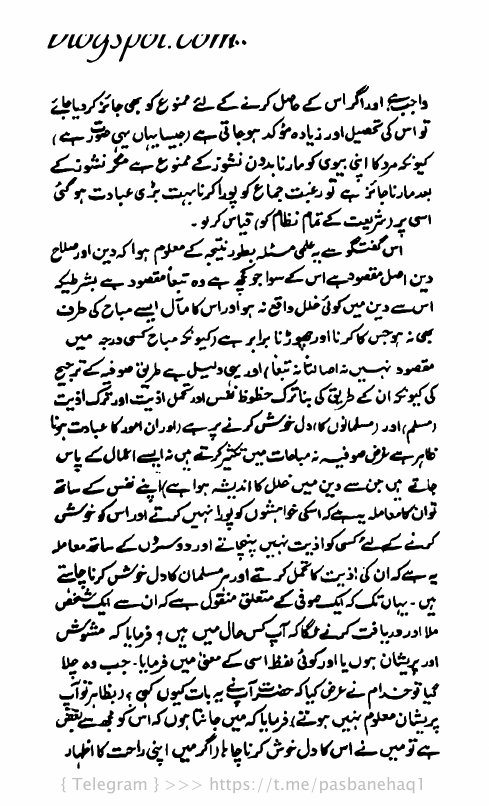 blogspot.com..
واجب ہے اور اگر اس کے حاصل کرنے کے لئے ممنوع کو بھی جائز کر دیا جائے
تو اس کی تحصیل اور زیادہ مؤکد ہو جاتی ہے (جیسا یہاں یہی صورت ہے)
کیونکہ مرد کا اپنی بیوی کو مارنا بدون نشوز کے ممنوع ہے مگر نشوز کے
بعد مارنا جائز ہے تو رغبت جماع کو پورا کرنا بہت بڑی عبادت ہوگئی
اسی پر (شریعت کے تمام نظام کو) قیاس کر لو۔
اس گفتگو سے یہ علمی مسئلہ بطور نتیجہ کے معلوم ہوا کہ دین اور صلاح
دین اصل مقصود ہے اس کے سوا جو کچھ ہے وہ تبعاً مقصود ہے بشرطیکہ
اس سے دین میں کوئی خلل واقع نہ ہو اور اس کا مآل ایسے مباح کی طرف
بھی نہ ہو جس کا کرنا اور چھوڑنا برابر ہے (کیونکہ مباح کسی درجہ میں
مقصود نہیں نہ اصالتاً نہ تبعاً) اور یہی دلیل ہے طریق صوفیہ کے ترجیح
کی کیونکہ ان کے طریق کی بنا ترک حظوظ نفس اور تحمل اذیت اور ترک اذیت
(مسلم) اور (مسلمانوں کا) دل خوش کرنے پر ہے (اور ان امور کا عبادت ہونا
ظاہر ہے غرض صوفیہ نہ مباحات میں تکثیر کرتے ہیں نہ ایسے اعمال کے پاس
جاتے ہیں جن سے دین میں خلل کا اندیشہ ہوا ہے) اپنے نفس کے ساتھ
تو ان کا معاملہ یہ ہے کہ اسکی خواہشوں کو پورا نہیں کرتے اور اس کو خوش
کرنے کے لئے کسی کو اذیت نہیں پہنچاتے اور دوسروں کے ساتھ معاملہ
یہ ہے کہ ان کی اذیت کا تحمل کرتے اور ہر مسلمان کا دل خوش کرنا چاہتے
ہیں۔ یہاں تک کہ ایک صوفی کے متعلق منقول ہے کہ ان سے ایک شخص
ملا اور دریافت کرنے لگا کہ آپ کس حال میں ہیں؟ فرمایا کہ مشوش
اور پریشان ہوں یا اور کوئی لفظ اسی کے معنی میں فرمایا۔ جب وہ چلا
گیا تو خدام نے عرض کیا کہ حضرت آپ نے یہ بات کیوں کہی؟ (بظاہر تو آپ
پریشان معلوم نہیں ہوتے) فرمایا کہ میں جانتا ہوں کہ اس کو مجھ سے بغض
ہے تو میں نے اس کا دل خوش کرنا چاہا (اگر میں اپنی راحت کا اظہار
{ Telegram } >>> https://t.me/pasbanehaq1